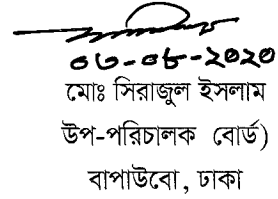 ০৩-০৮-২০২০
মোঃ সিরাজুল ইসলাম
উপ-পরিচালক বোর্ড)
বাপাউবো, ঢাকা